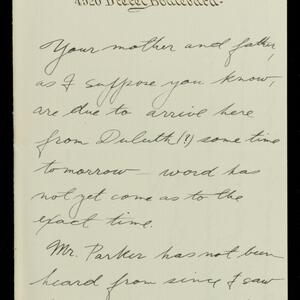 4920 Drexel Boulevard.
Your mother and father,
as I suppose you know,
are due to arrive here
from Duluth(?) some time
tomorrow - word has
not yet come as to the
exact time.
Mr. Parker has not been
heard from since I saw